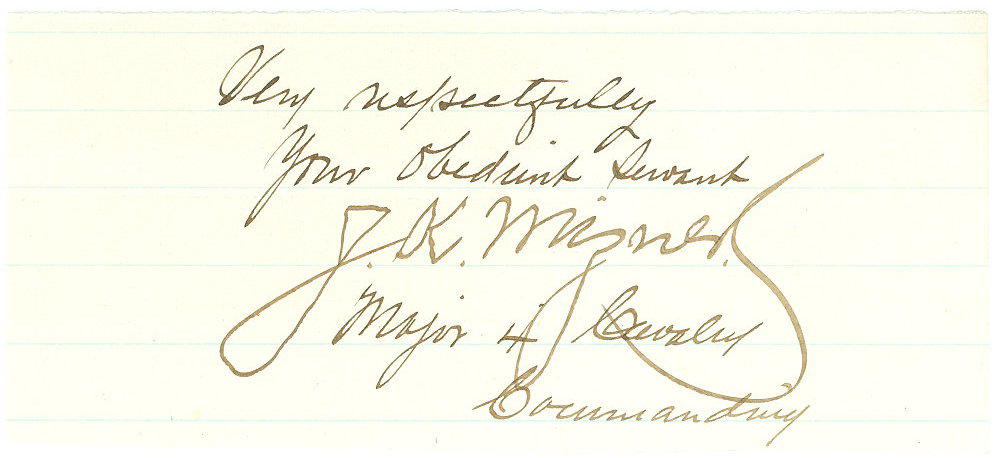 Very respectfully
Your Obedient Servant
J. K. Mizner.
Major 4 Cavalry
Commanding